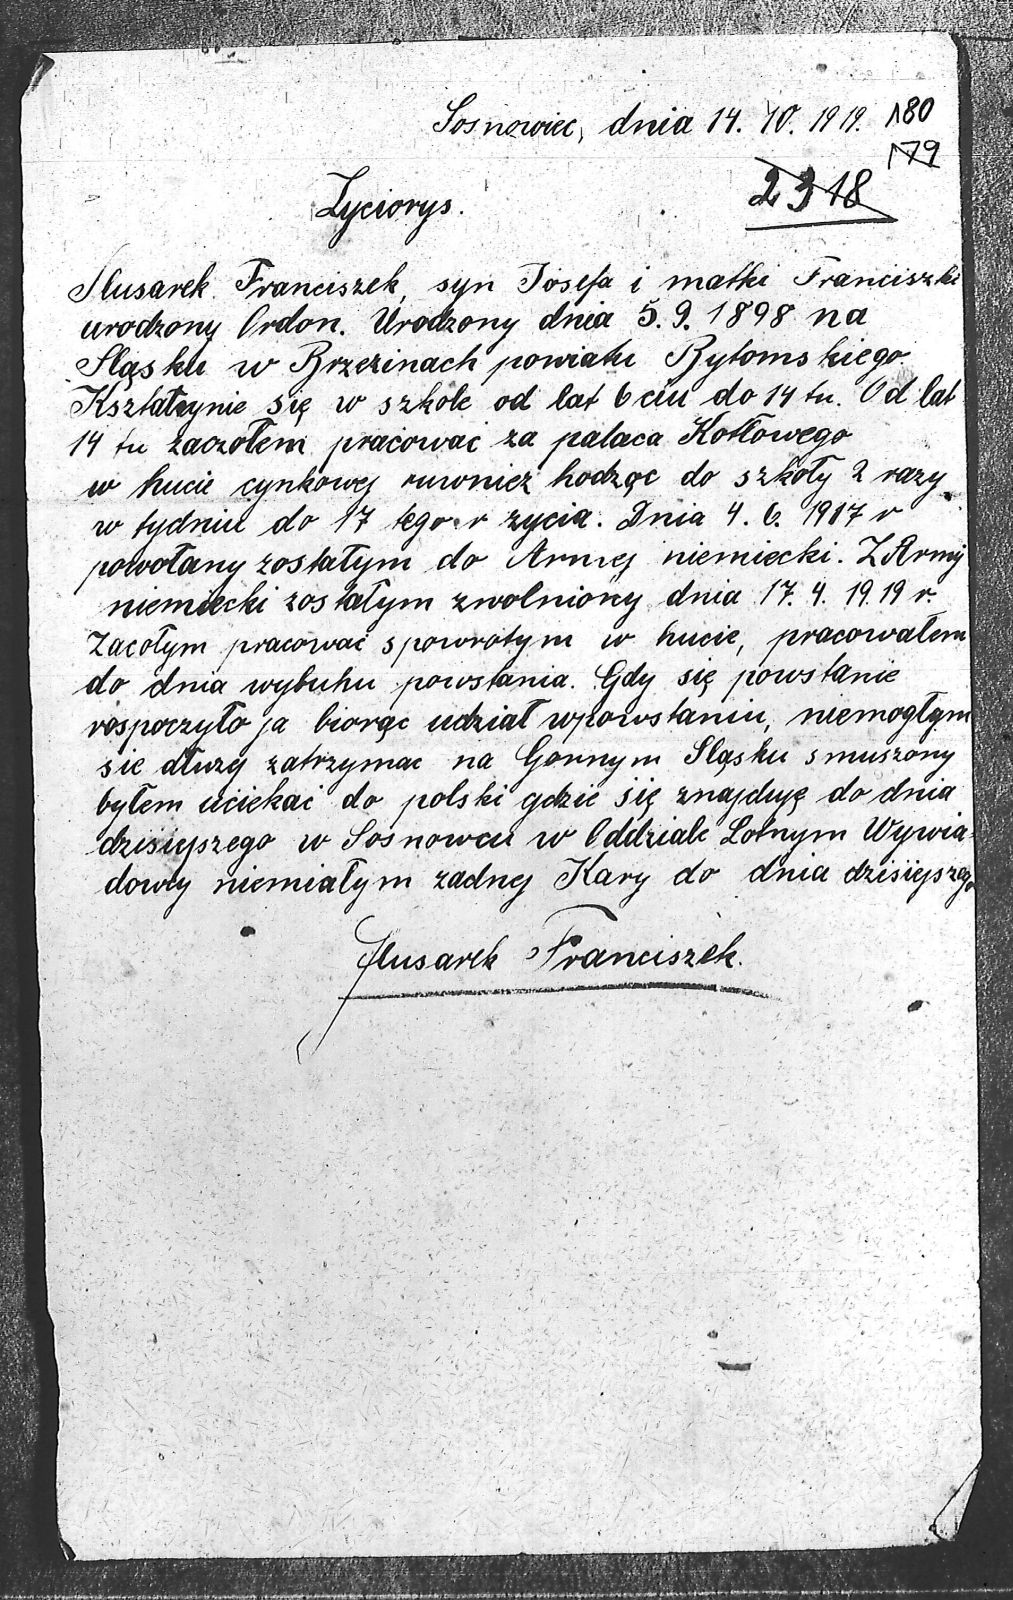 Sosnowiec, dnia 14. 10. 1919. 180
179
2318
Zyciorys.
Slusarek Franciszek, syn Josefa i matki Franciszki
urodzony Ordon. Urodzony dnia 5. 9. 1898 na
Sląsku w Brzezinach powiatu Bytomskiego
Kształcynie się w szkole od lat 6 ciu do 14 tu. Od lat
14 tu zaczołem pracować za palaca Kotłowego
w hucie cynkowej ruwnież hodząc do szkoły 2 razy
w tydniu do 17 tego r zycia. Dnia 4. 6. 1917 r
powołany zostałym do Armej niemiecki. Z Army
niemiecki zostałym zwolniony dnia 17. 4. 1919 r.
Zacołym pracować spowrotym w hucie, pracowałem
do dnia wybuhu powstania. Gdy się powstanie
rospoczyło ja biorąc udział wpowstaniu, niemogłym
sie dłuzy zatrzymac na Gornym Sląsku smuszony
byłem uciekać do polski gdzie się znajduję do dnia
dzisiyszego w Sosnowcu w Oddziale Lotnym Wywia-
dowcy niemiałym zadnej Kary do dnia dzisiejszego
Slusarek Franciszek.